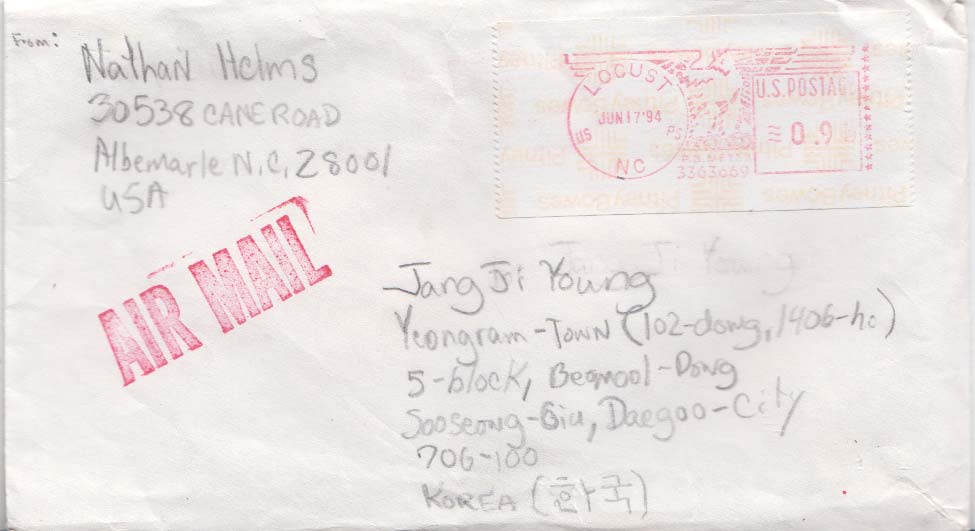 From:
Nathan Helms
30538 CANE ROAD
Albemarle N.C. 28001
USA
LOCUST
JUN 17 '94
US PS
NC
U.S. POSTAG
0.9
P.B. METER
3363669
Pitney Bowes
AIR MAIL
Jang Ji Young
Yeongram-Town (102-dong, 1406-ho)
5-block, Beomool-Dong
Sooseong-Giu, Daegoo-City
706-100
KOREA (한국)